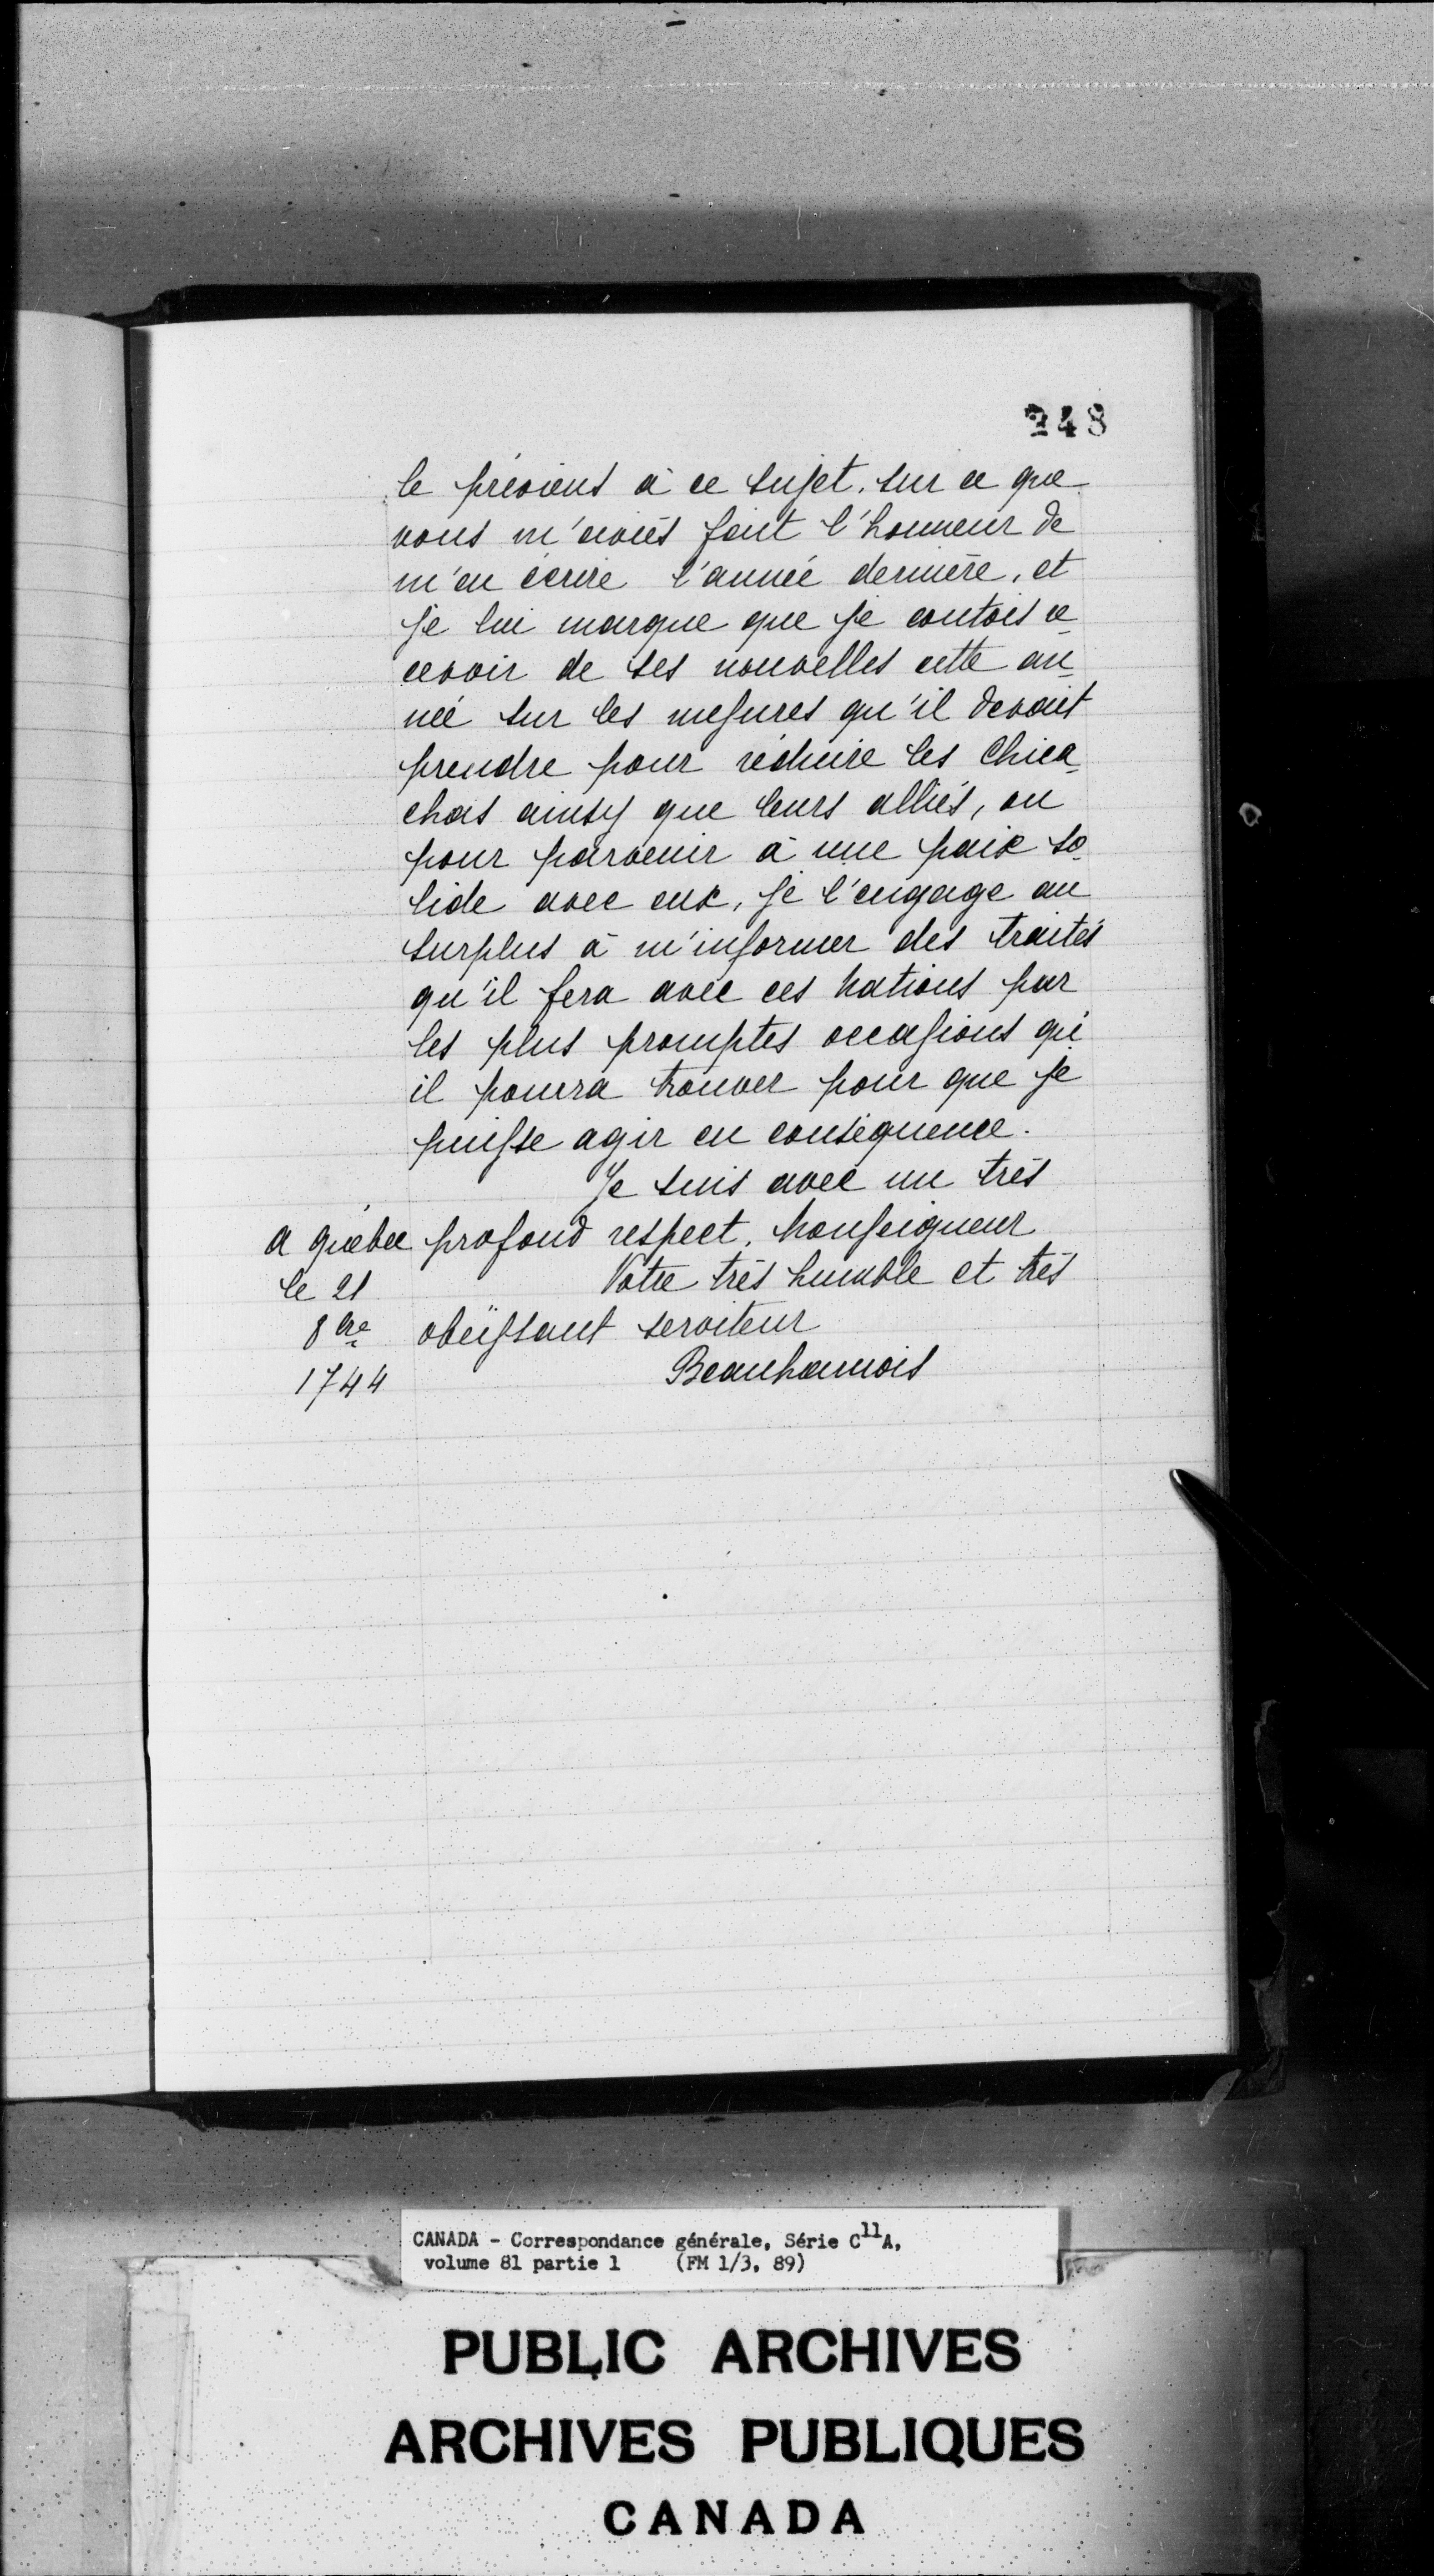 248
le préviens à ce sujet, sur ce que
vous m'aviés fait l'honneur de
m'en écrire l'année dernière, et
je lui marque que je contois re
cevoir de ses nouvelles cette an
née sur les mesures qu'il devait
prendre pour réduire les Chica
chas ainsy que leurs alliés, ou
pour parvenir à une paix so
lide avec eux, je l'engage au
surplus à m'informer des traités
qu'il fera avec ces nations par
les plus promptes occasions qu'
il pourra trouver pour que je
puisse agir en conséquence.
Je suis avec un très
a Québec profond respect, Monseigneur
le 21 Votre très humble et très
8bre obeïssant serviteur
1744 Beauharnois
CANADA - Correspondance générale, Série C11A,
volume 81 partie 1 (FM 1/3, 89)
PUBLIC ARCHIVES
ARCHIVES PUBLIQUES
CANADA